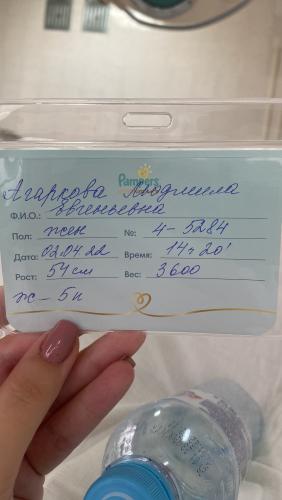 Pampers
Агаркова Людмила
Ф.И.О.: Евгеньевна
Пол: жен №: 4-5284
Дата: 02.04.22 Время: 14ч 20'
Рост: 54 см Вес: 3600
ж - 5п